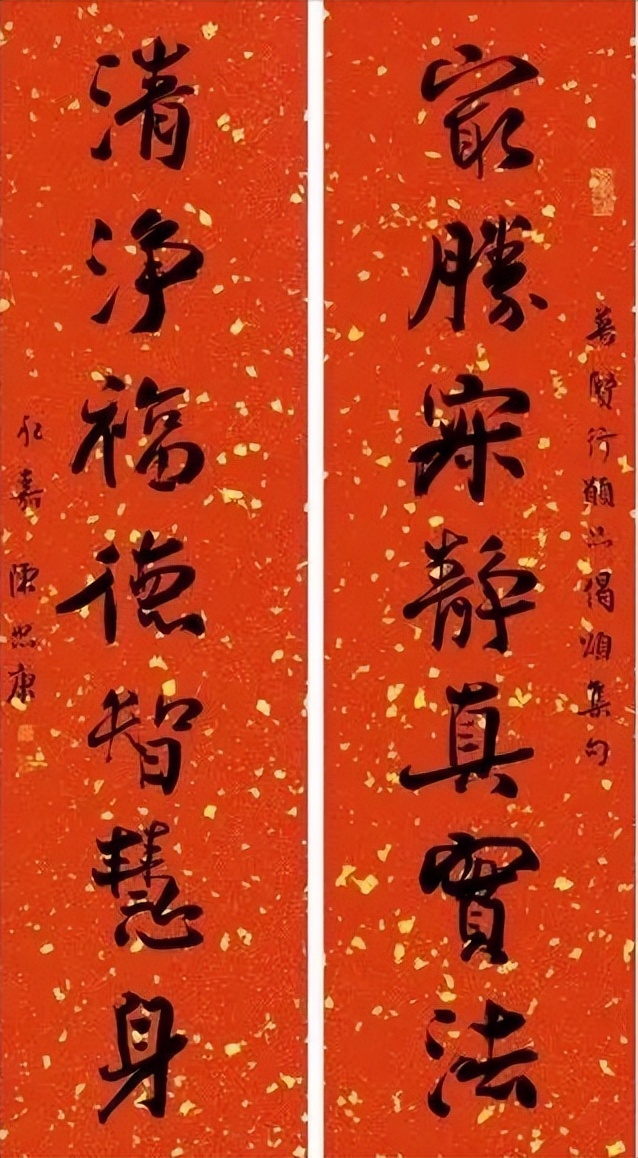 普賢行願品偈頌集句
最勝寂靜真實法
清淨福德智慧身
永嘉陳忠康